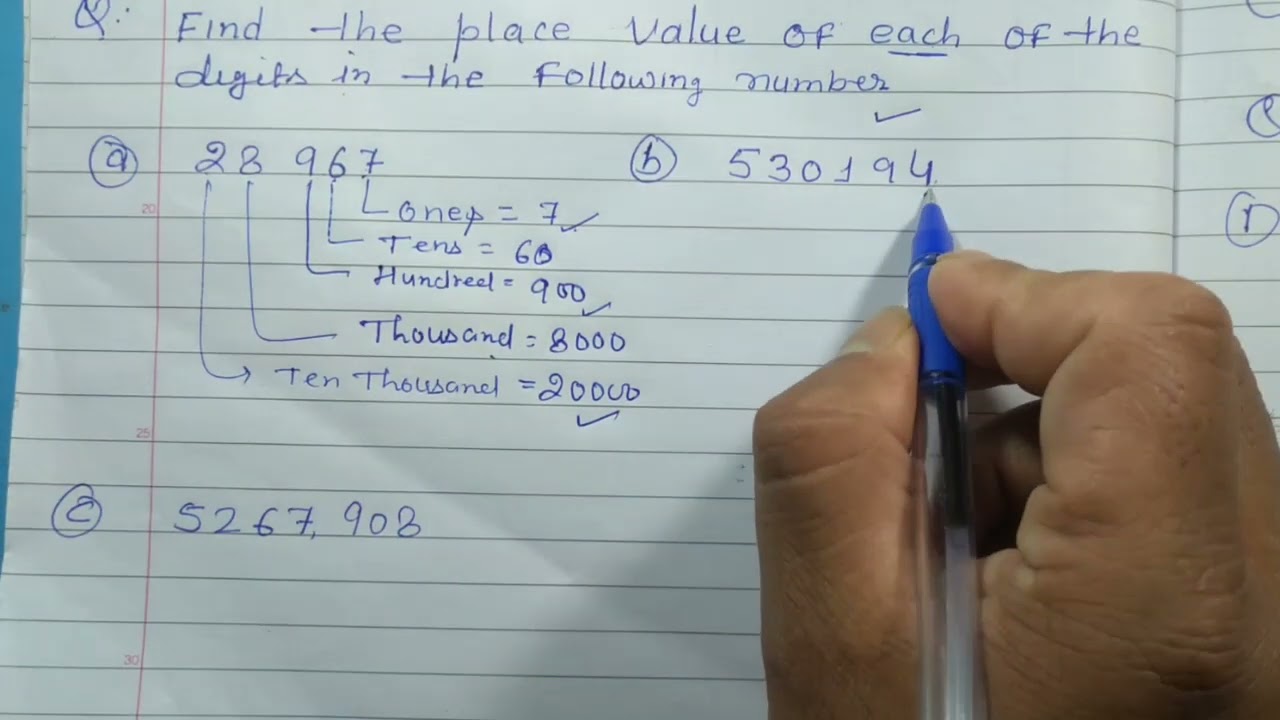 Q:
Find the place value of each of the
digits in the following number
(a) 28 967
(b) 530194
Ones = 7
Tens = 60
Hundred = 900
Thousand = 8000
Ten Thousand = 20000
(c) 5267,908
20
25
30